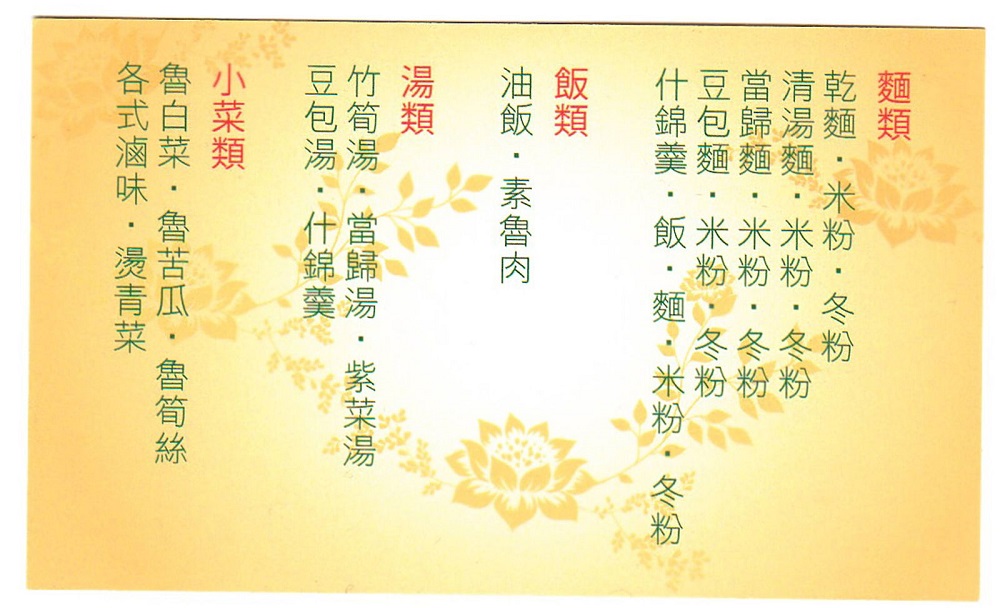 麵類
乾麵．米粉．冬粉
清湯麵．米粉．冬粉
當歸麵．米粉．冬粉
豆包麵．米粉．冬粉
什錦羹．飯．麵．米粉．冬粉
飯類
油飯．素魯肉
湯類
竹筍湯．當歸湯．紫菜湯
豆包湯．什錦羹
小菜類
魯白菜．魯苦瓜．魯筍絲
各式滷味．燙青菜